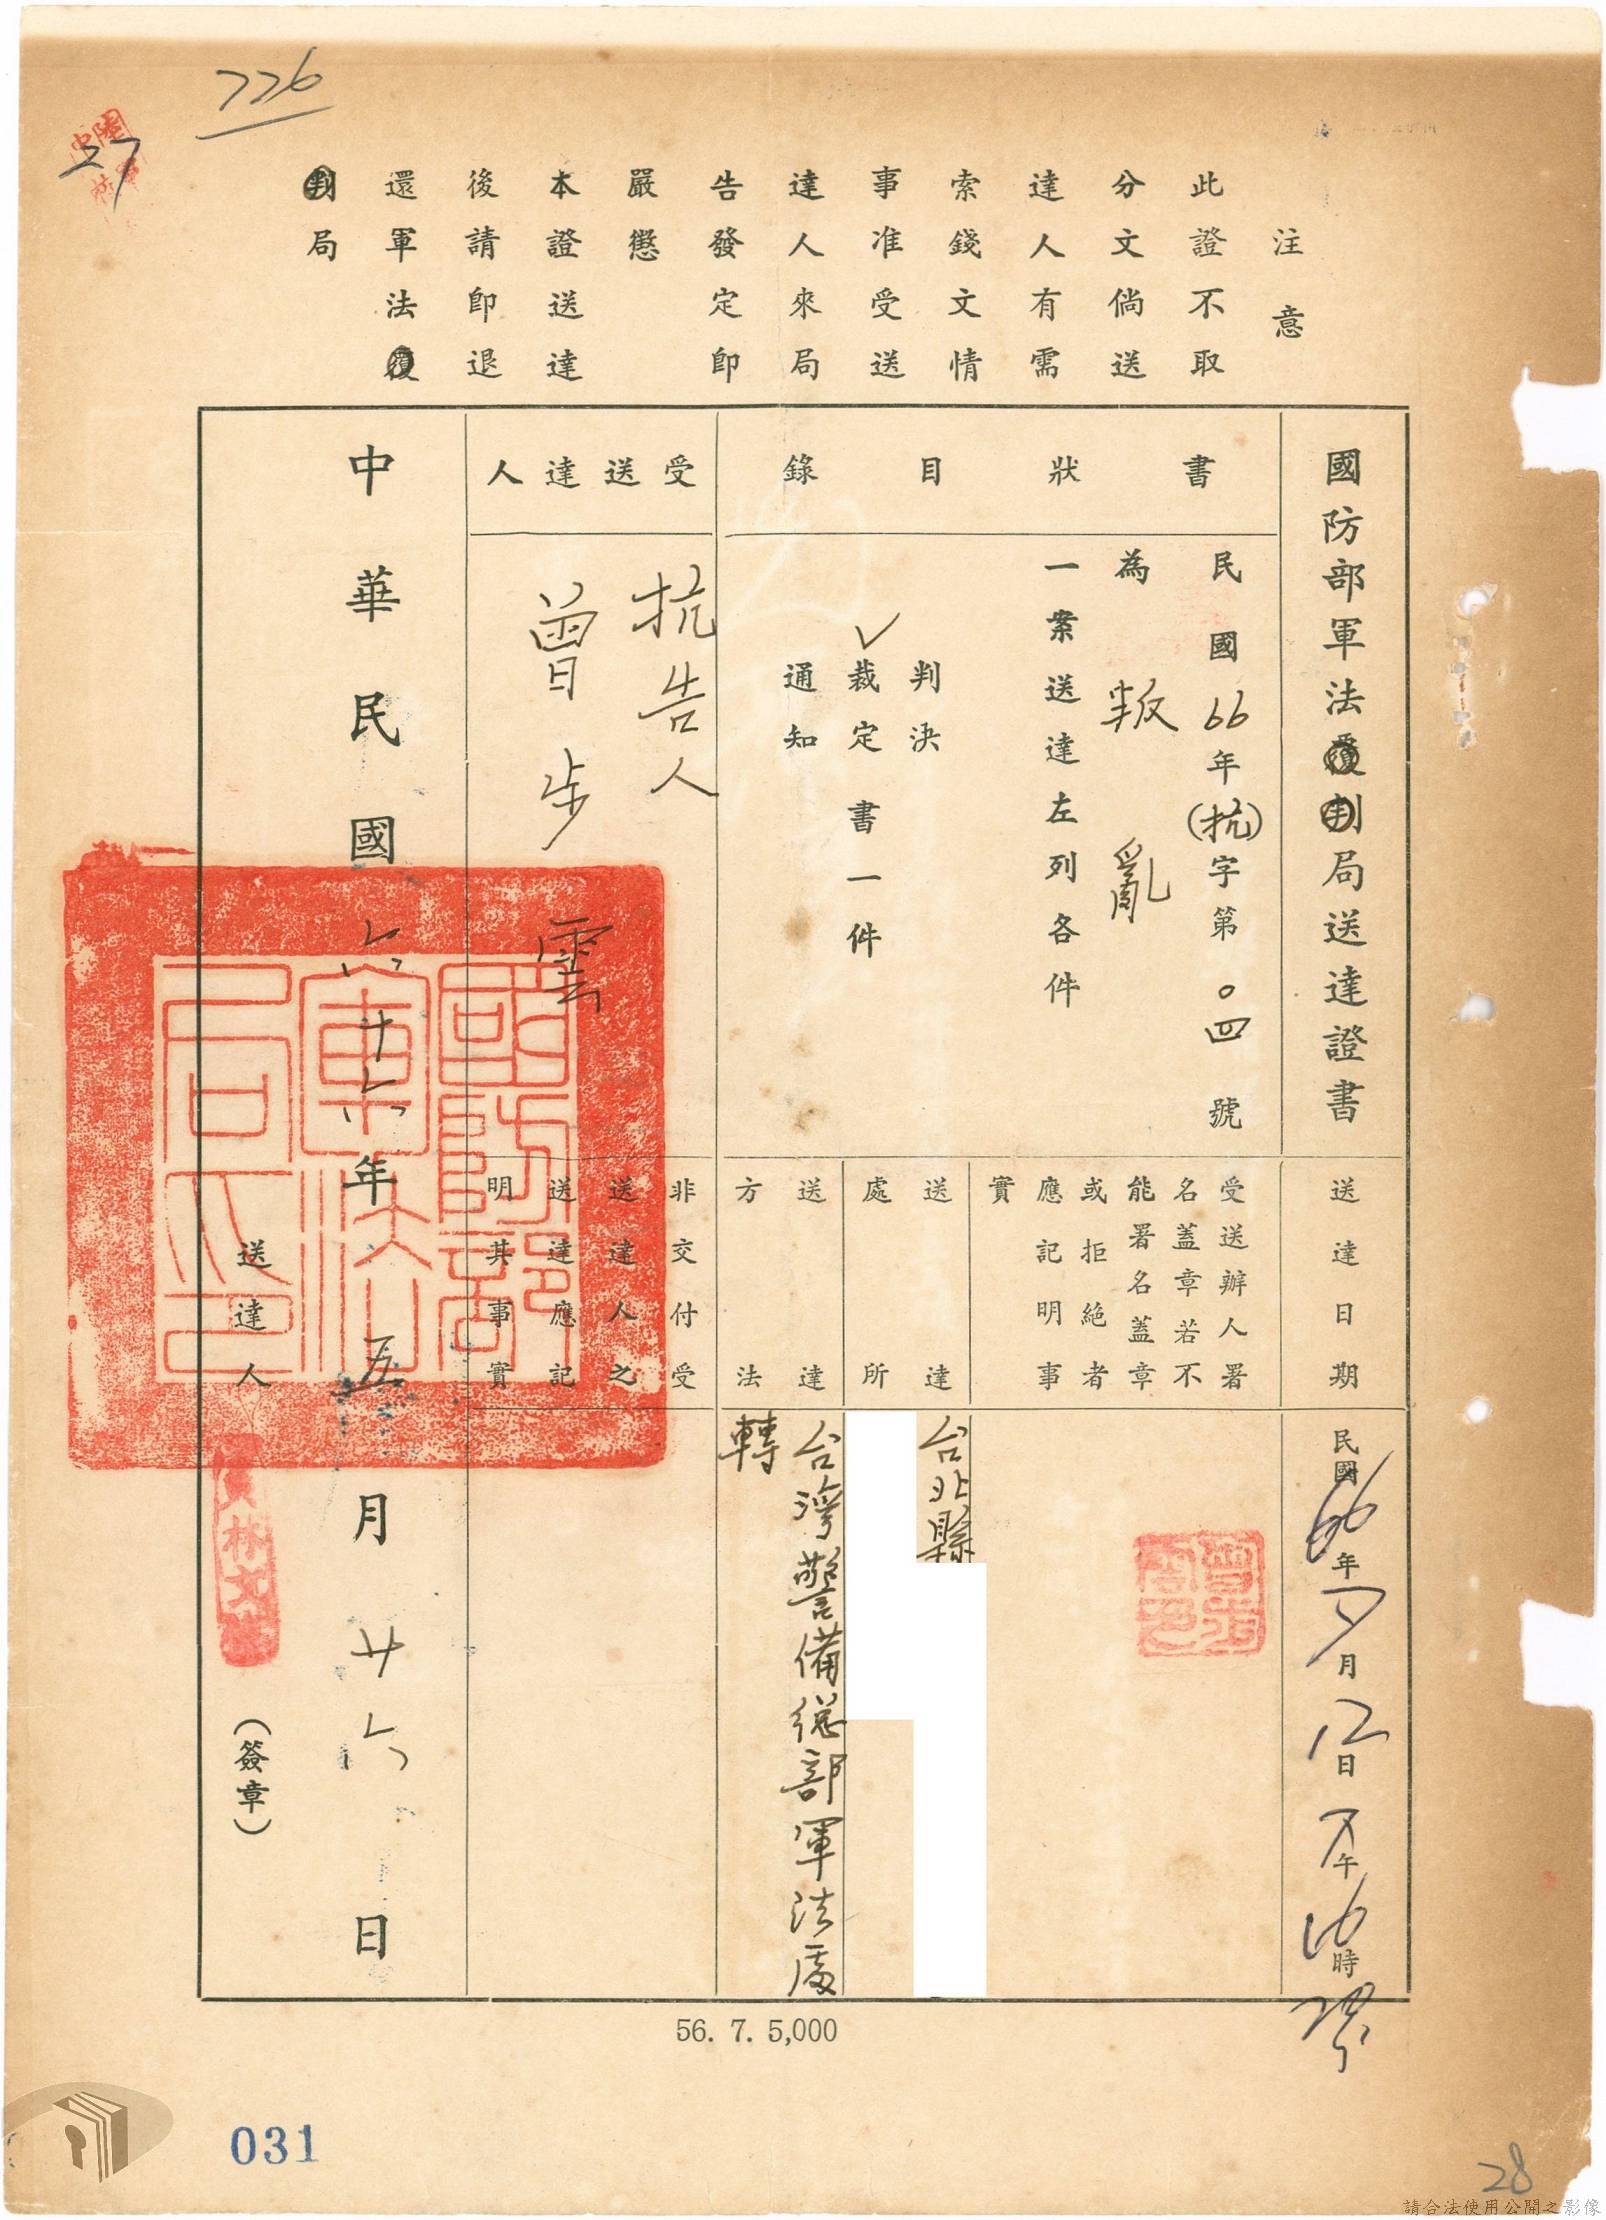 726
27
注意
此證不取
分文倘送
達人有需
索錢文情
事准受送
達人來局
告發定即
嚴懲
本證送達
後請即退
還軍法覆
判局
國防部軍法覆判局送達證書
書狀目錄
民國66年(抗)字第〇四號
為叛亂
一案送達左列各件
判決
✓裁定書一件
通知
受送達人
抗告人
曾步雲
送達日期
民國66年7月12日下午16時20分
受送辦人署
名蓋章若不
能署名蓋章
或拒絕者
應記明事
實
曾步雲印
送達
處所
台北縣
送達
方法
台灣警備總部軍法處
轉
非交付受
送達人之
送達應記
明其事實
中華民國六十六年五月廿六日
國防部軍法局之印
送達人
(簽章)
56. 7. 5,000
031
28
請合法使用公開之影像